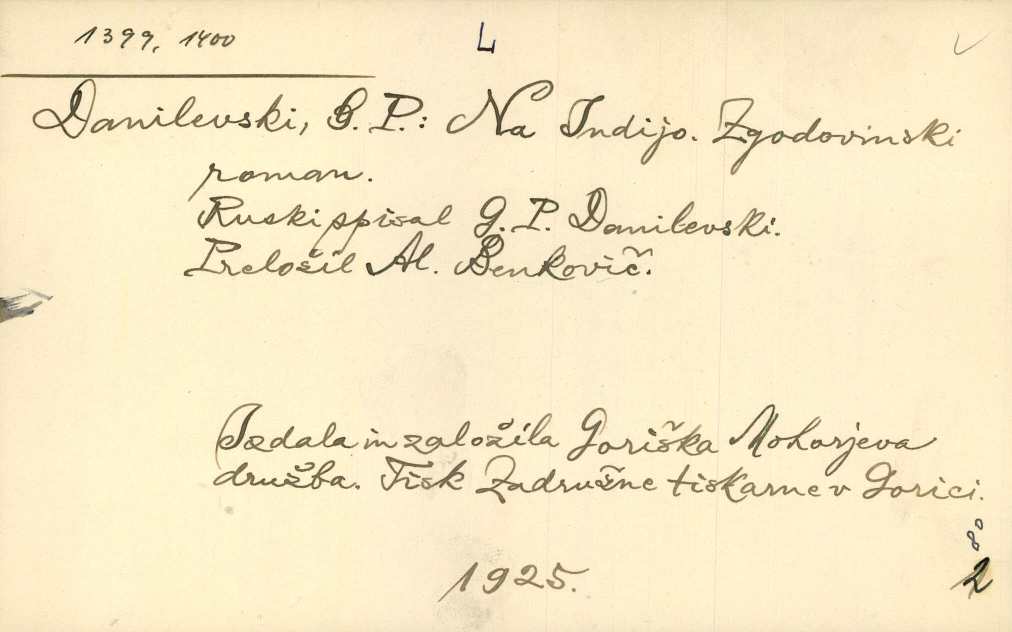 1399, 1400 L
Danilevski, G. P.: Na Indijo. Zgodovinski
roman.
Ruski spisal G. P. Danilevski.
Preložil Al. Benkovič.
Izdala in založila Goriška Mohorjeva
družba. Tisk Zadružne tiskarne v Gorici.
8°
1925. 2